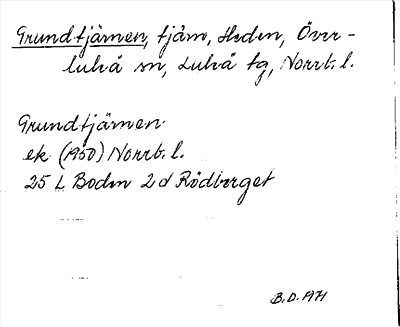 Grundtjärnen, tjärn, Heden, Över-
luleå sn, Luleå tg, Norrb. l.
Grundtjärnen
ek (1950) Norrb. l.
25 L Boden 2 d Rödberget
B.D. 1971